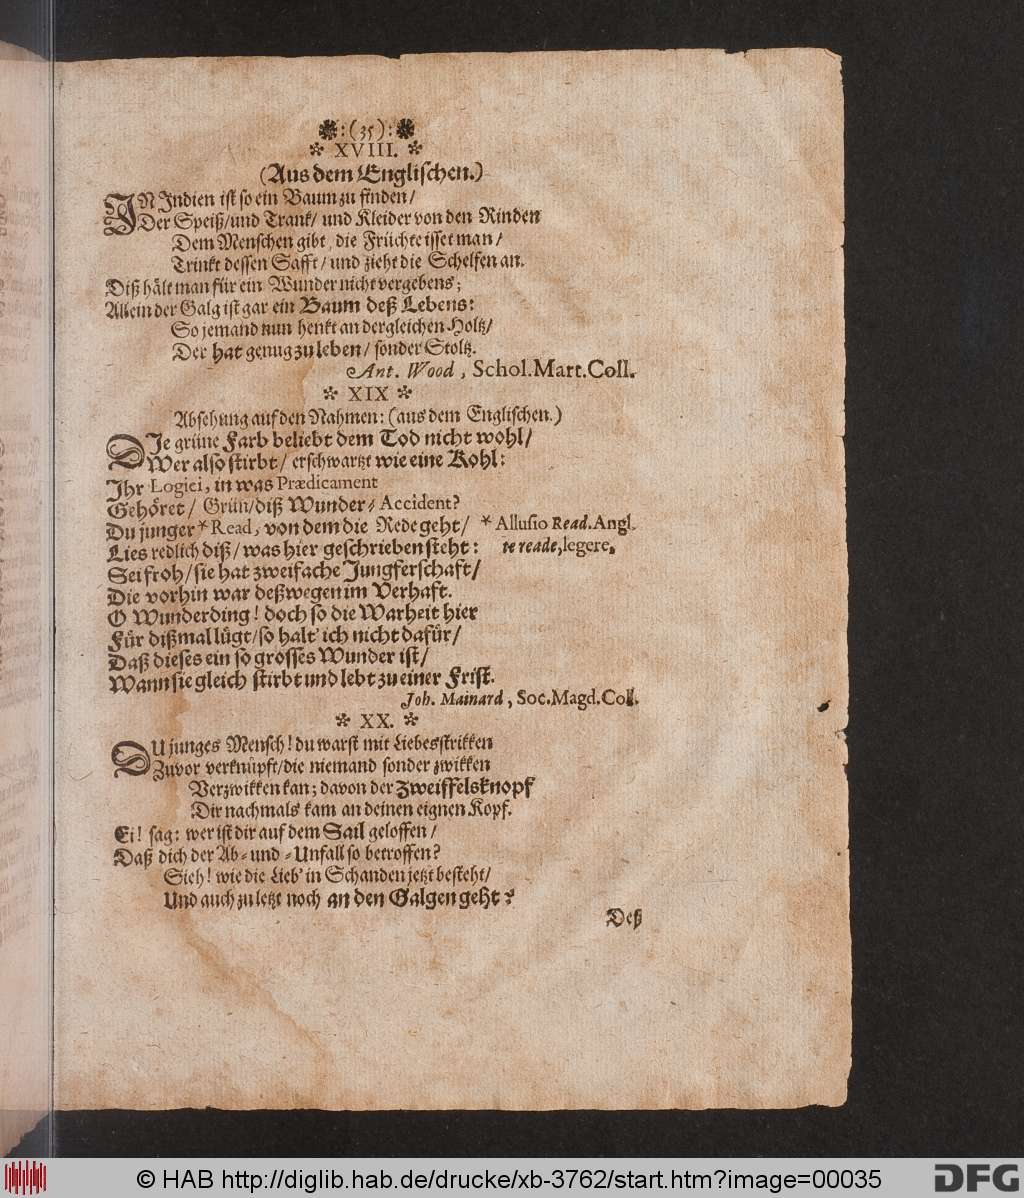 ✵:(35):✵
* XVIII. *
(Aus dem Englischen.)
IN Indien ist so ein Baum zu finden/
Der Speiß/und Trank/ und Kleider von den Rinden
Dem Menschen gibt, die Früchte isset man/
Trinkt dessen Safft/ und zieht die Schelfen an.
Diß hält man für ein Wunder nicht vergebens;
Allein der Galg ist gar ein Baum deß Lebens:
So jemand nun henkt an dergleichen Holtz/
Der hat genug zu leben/ sonder Stoltz.
Ant. Wood, Schol.Mart.Coll.
* XIX *
Absehung auf den Nahmen: (aus dem Englischen.)
DIe grüne Farb beliebt dem Tod nicht wohl/
Wer also stirbt/ erschwartzt wie eine Kohl:
Ihr Logici, in was Prædicament
Gehöret/ Grün/diß Wunder-Accident?
Du junger * Read, von dem die Rede geht/ * Allusio Read. Angl.
Lies redlich diß/ was hier geschrieben steht: te reade, legere.
Sei froh/ sie hat zweifache Jungferschaft/
Die vorhin war deßwegen im Verhaft.
O Wunderding! doch so die Warheit hier
Für dißmal lügt/so halt' ich nicht dafür/
Daß dieses ein so grosses Wunder ist/
Wann sie gleich stirbt und lebt zu einer Frist.
Joh. Mainard, Soc.Magd.Col.
* XX. *
DU junges Mensch! du warst mit Liebesstrikken
Zuvor verknüpft/die niemand sonder zwikken
Verzwikken kan; davon der Zweiffelsknopf
Dir nachmals kam an deinen eignen Kopf.
Ei! sag: wer ist dir auf dem Sail geloffen/
Daß dich der Ab- und -Unfall so betroffen?
Sieh! wie die Lieb' in Schanden jetzt besteht/
Und auch zu letzt noch an den Galgen geht?
Deß
© HAB http://diglib.hab.de/drucke/xb-3762/start.htm?image=00035
DFG